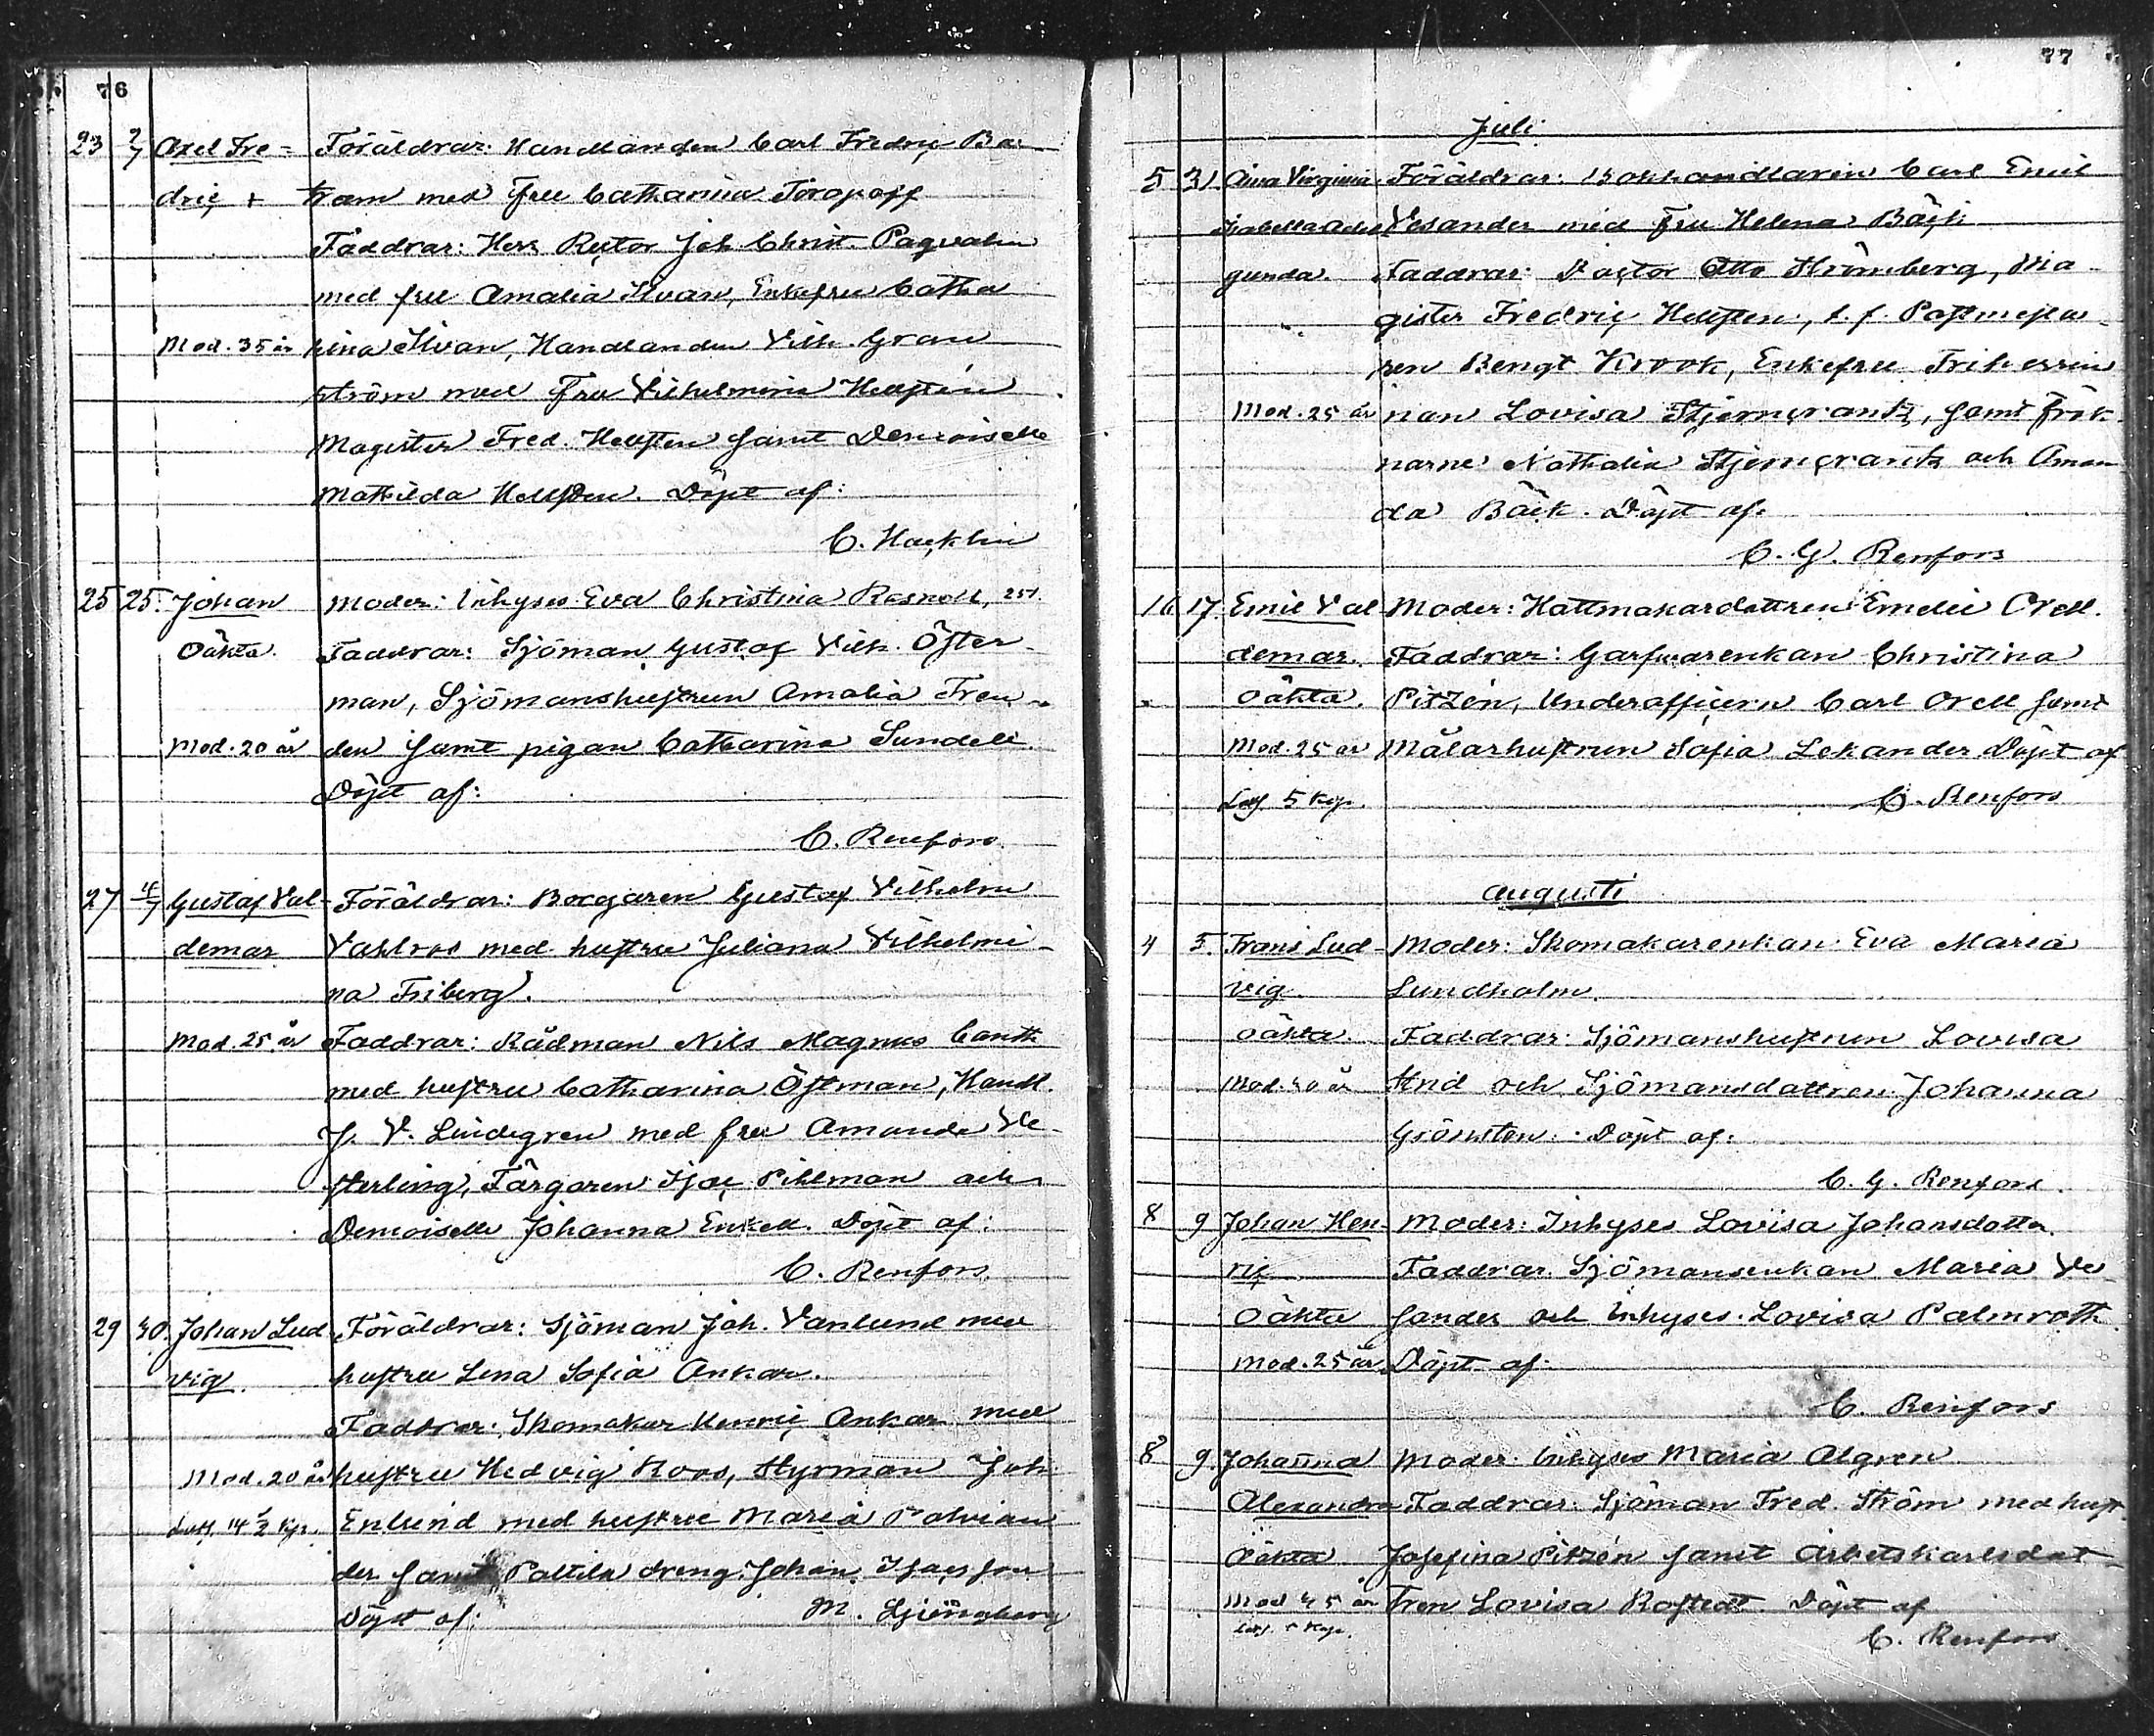 76
23 2/7 Axel Fre= Föräldrar: Handlanden Carl Fredric Ba=
dric + tram med Fru Catharina Toropoff
Faddrar: Herr Rector Joh. Christ. Paqvalin
med fru Amalia Ilvan, Enkefru Catha
Mod. 35 år rina Ilvan, Handlanden Vilh. Gran
ström med Fru Vilhelmina Hellsten
Magister Fred. Hellsten samt Demoiselle
Mathilda Hellsten. Döpt af:
C. Hacklin
25 25. Johan Moder: Inhyses Eva Christina Rasmell,
Oäkta. Faddrar: Sjöman Gustaf Vilh. Öster-
man, Sjömanshustrun Amalia Fren-
Mod. 20 år den samt pigan Catharina Sundell.
Döpt af:
C. Renfors.
27 4/7 Gustaf Val- Föräldrar: Borgaren Gustaf Vilhelm
demar Vahlroos med hustru Juliana Vilhelmi-
na Friberg.
Mod. 25 år Faddrar: Rådman Nils Magnus Canth
med hustru Catharina Östman, Handl.
J. V. Lindegren med fru Amanda Ve-
sterling, Färgaren Isac Pihlman och
Demoiselle Johanna Enkell. Döpt af:
C. Renfors.
29 30. Johan Lud Föräldrar: Sjöman Joh. Vanlund med
vig. hustru Lena Sofia Ankar.
Faddrar: Skomakar Henric Ankar med
Mod. 20 år hustru Hedvig Roos, Styrman Joh
14 1/2 Enlund med hustru Maria Polvian
der samt Pattila dreng Johan Isacsson
Döpt af: M. Ljungberg
77
Juli.
5 31 Aina Virginia Föräldrar: Bokhandlaren Carl Emil
Isabella Vesander med Fru Helena Bäck
gunda. Faddrar: Doctor Otto Strömberg, Ma-
gister Fredric Hellsten, t. f. Postmesta-
ren Bengt Krook, Enkefru Friherrin
Mod. 25 år nan Lovisa Stjerncrantz, samt Frök
narne Nathalia Stjerncrantz och Aman
da Bäck. Döpt af.
C. G. Renfors
16 17. Emil Val- Moder: Hattmakardottren Emelie Orell.
demar. Faddrar: Garfvarenkan Christina
Oäkta. Pitzén, Underofficern Carl Orell samt
Mod. 25 år Målarhustrun Sofia Lekander. Döpt af
5 Kop. C. Renfors
Augusti
4 5. Frans Lud- Moder: Skomakarenkan Eva Maria
vig. Lundholm.
Oäkta. Faddrar: Sjömanshustrun Lovisa
Mod. år Strid och Sjömansdottren Johanna
Grönsten. Döpt af:
C. G. Renfors.
8 9 Johan Hen- Moder: Inhyses Lovisa Johansdotter.
ric Faddrar. Sjömansenkan Maria Ve-
Oäkta sander och Inhyses Lovisa Palmroth
Mod. 25 år Döpt af:
C. Renfors
8 9. Johanna Moder: Inhyses Maria Algren
Alexandra Faddrar: Sjöman Fred. Ström med hust.
Oäkta Josefina Pitzén samt Arbetskarlsdot-
Mod 45 år tren Lovisa Rostedt. Döpt af
C. Renfors.